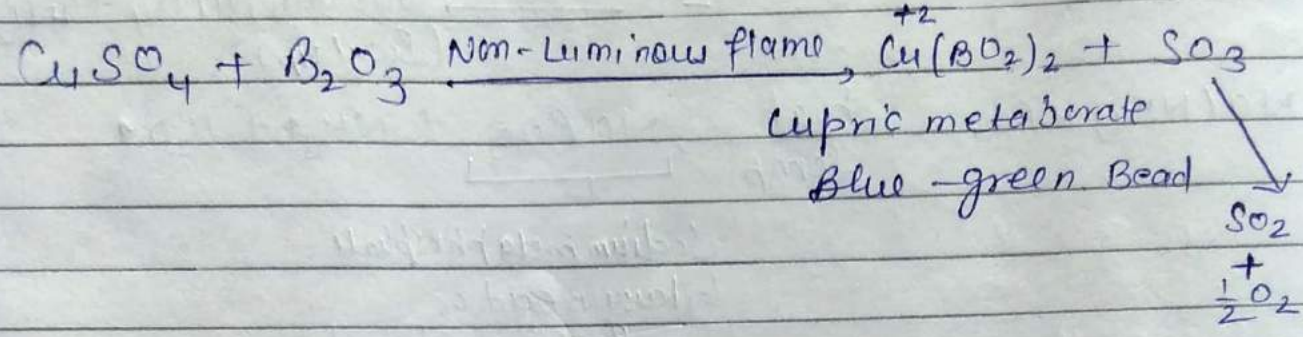 CuSO₄ + B₂O₃ Non-Luminous flame → Cu(BO₂)₂ + SO₃
+2
Cupric metaborate
Blue-green Bead
SO₂
+
½O₂